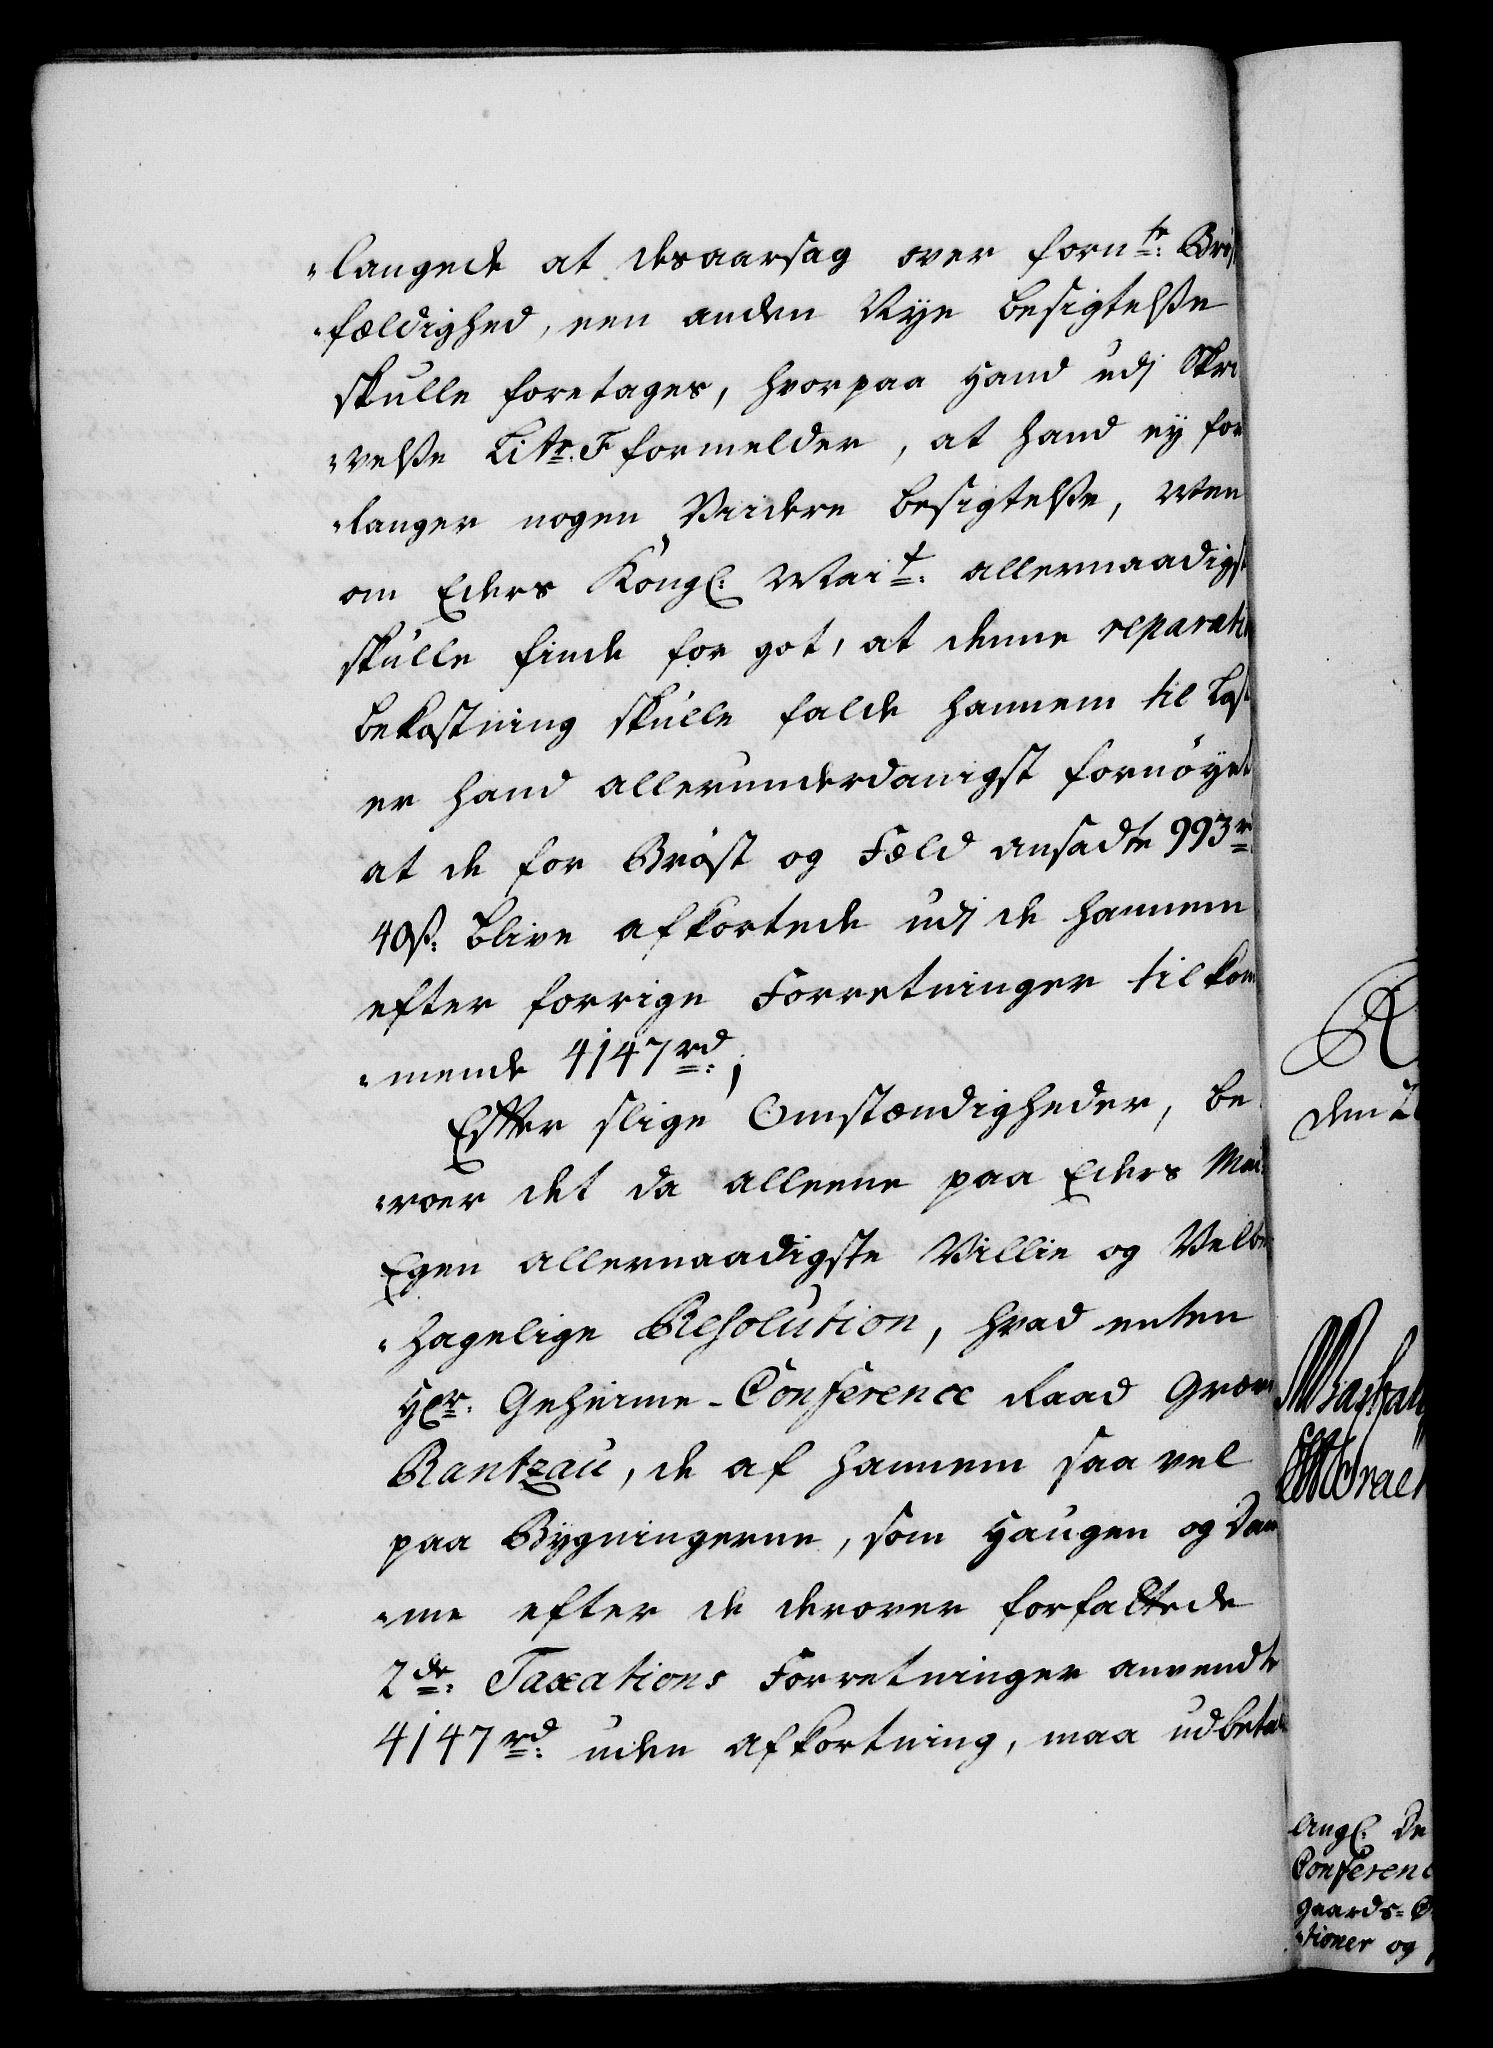 "langede at desaarsag over fornte: Brøst
"fældighed, een anden Nye besigtelße
skulle foretages, hvorpaa Hand udj Skri
"velße Litr. F formelder, at hand ey for
"langer nogen Viidere besigtelße, Men
om Eders Kongl: Mait: allernaadigst
skulle finde for got, at denne reparati
bekostning skulle falde hannem til Last
er hand allerunderdanigst fornøyet
at de for Brøst og Fæld ansadte 993 r
40ß: blive afkortede udj de hannem
efter forrige Forretninger tilkom
"mende 4147 rd:;
Efter slige Omstændigheder, be
"roer det da alleene paa Eders Mai:
Egen allernaadigste Villie og Velbe
"hagelige Resolution, hvad enten
Hr: Geheime-Conference Raad Græve
Rantzau, de af hannem saa vel
paa Bygningerne, som Haugen og Dam
"me efter de derover forfattede
2de: Taxations Forretninger anvendte
4147 rd: uden afkortning, maa udbetale
den 2
Angl: De
Conferenc
gaards-
"tioner og